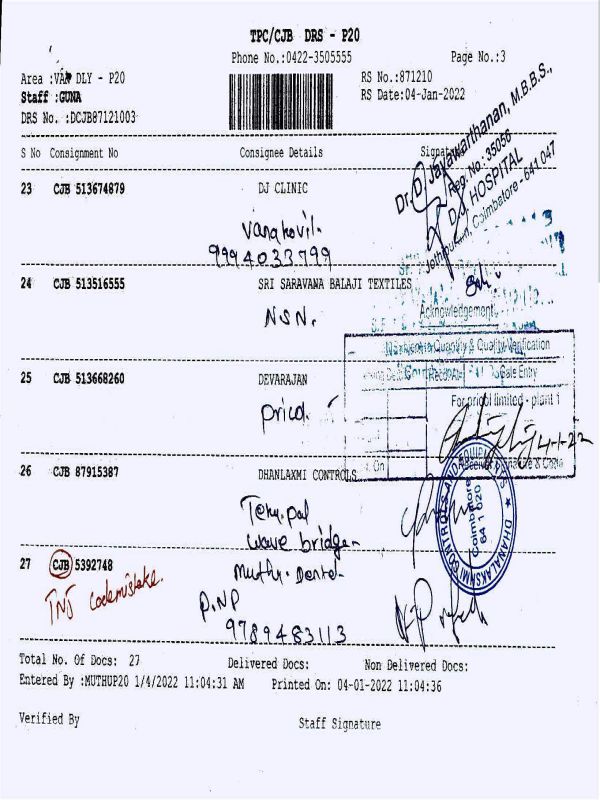 TPC/CJB DRS - P20
Phone No.:0422-3505555 Page No.:3
Area :VAN DLY - P20 RS No.:871210
Staff :GUNA RS Date:04-Jan-2022
DRS No. :DCJB87121003
S No Consignment No Consignee Details Signature
Dr. D. Jayawarthanan, M.B.B.S.,
Reg. No.: 35056
D.J. HOSPITAL
Coimbatore - 641 047
23 CJB 513674879 DJ CLINIC
Vanakovil.
9994033799
24 CJB 513516555 SRI SARAVANA BALAJI TEXTILES
NSN.
Acknowledgement
Quantity & Quality Verification
Gate Entry
25 CJB 513668260 DEVARAJAN
For pricol limited - plant 1
pricol.
4-1-22
26 CJB 87915387 DHANLAXMI CONTROLS
DHANALAKSHMI CONTROLS AND EQUIPMENTS
Coimbatore
64 1 020
wave bridge
27 CJB 5392748
TNJ code mistake.
P.NP
9789483113
Total No. Of Docs: 27 Delivered Docs: Non Delivered Docs:
Entered By :MUTHUP20 1/4/2022 11:04:31 AM Printed On: 04-01-2022 11:04:36
Verified By Staff Signature